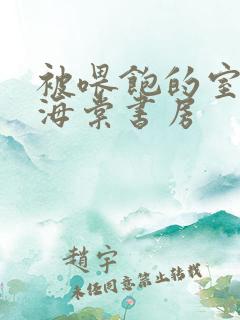 被喂饱的室
海棠书房
赵宇
未经同意禁止转载